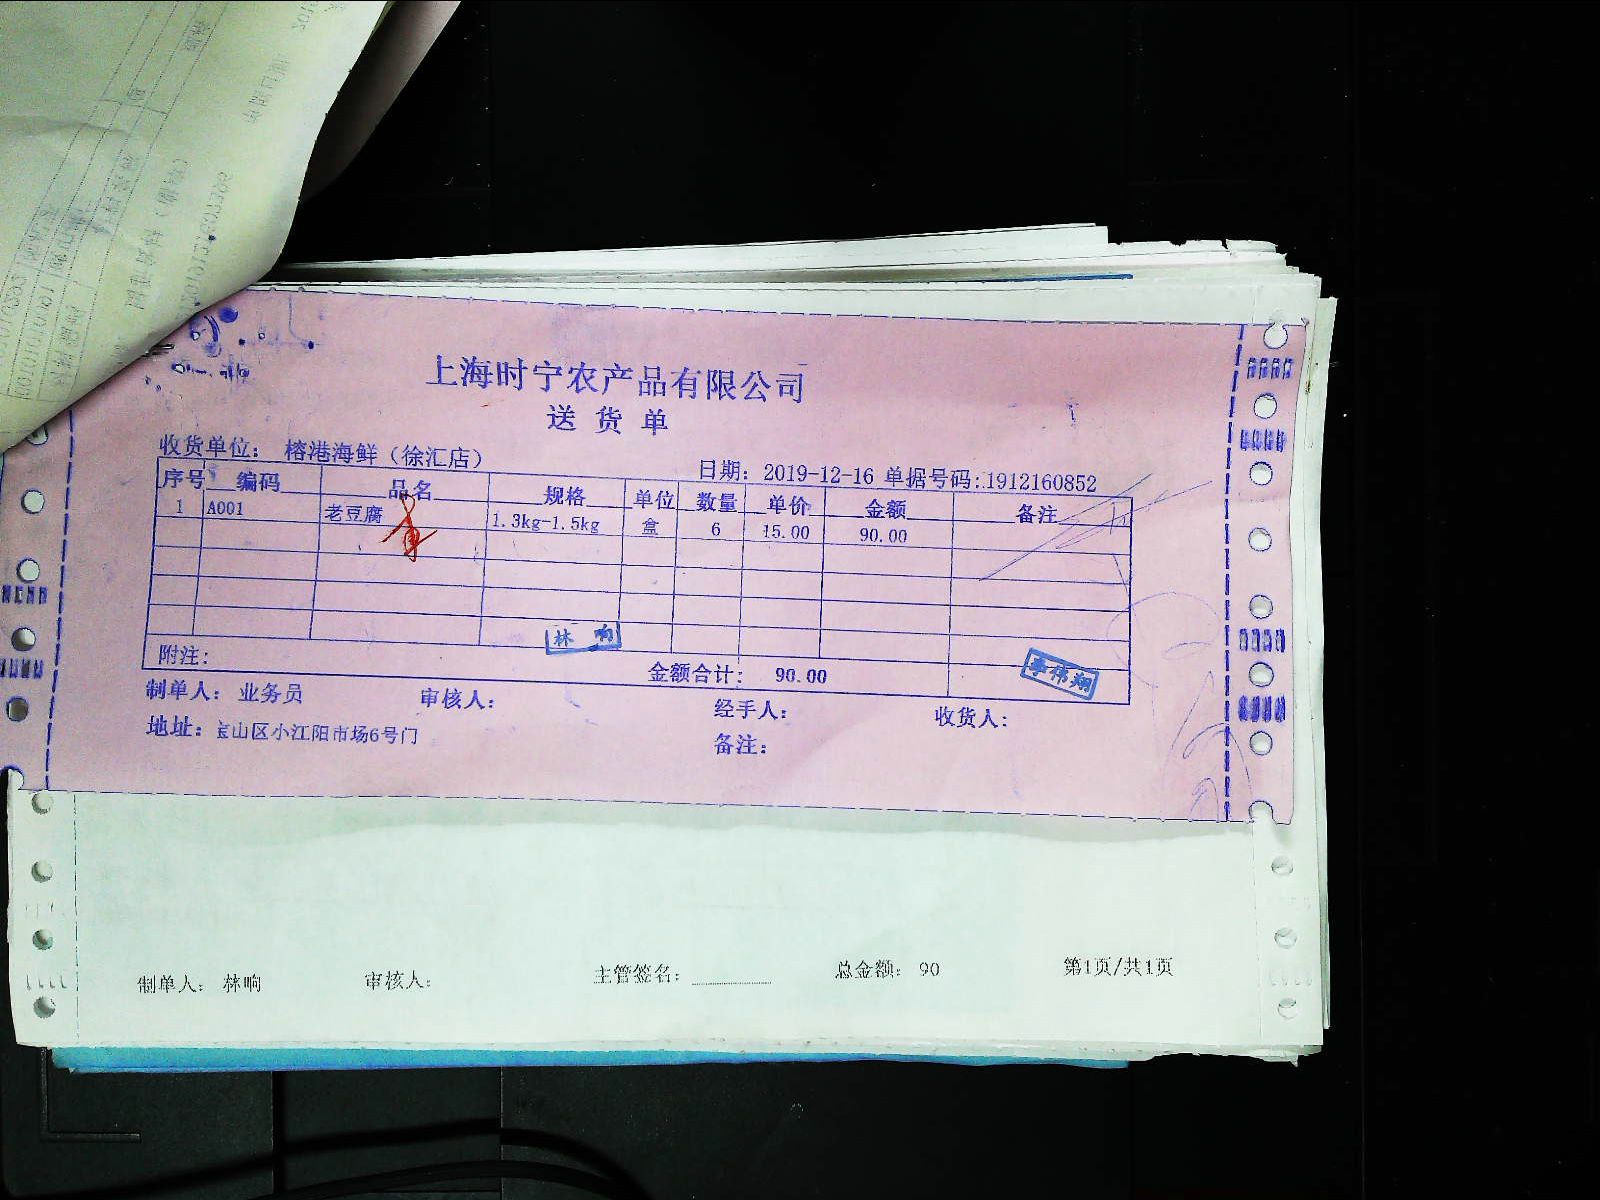 上海时宁农产品有限公司
送货单
收货单位： 榕港海鲜（徐汇店）
日期：2019-12-16 单据号码：1912160852
序号 编码 品名 规格 单位 数量 单价 金额 备注
1 A001 老豆腐 1.3kg-1.5kg 盒 6 15.00 90.00
林 响
附注：
金额合计： 90.00
李伟翔
制单人：业务员 审核人： 经手人： 收货人：
地址：宝山区小江阳市场6号门
备注：
制单人：林响 审核人： 主管签名： 总金额：90 第1页/共1页